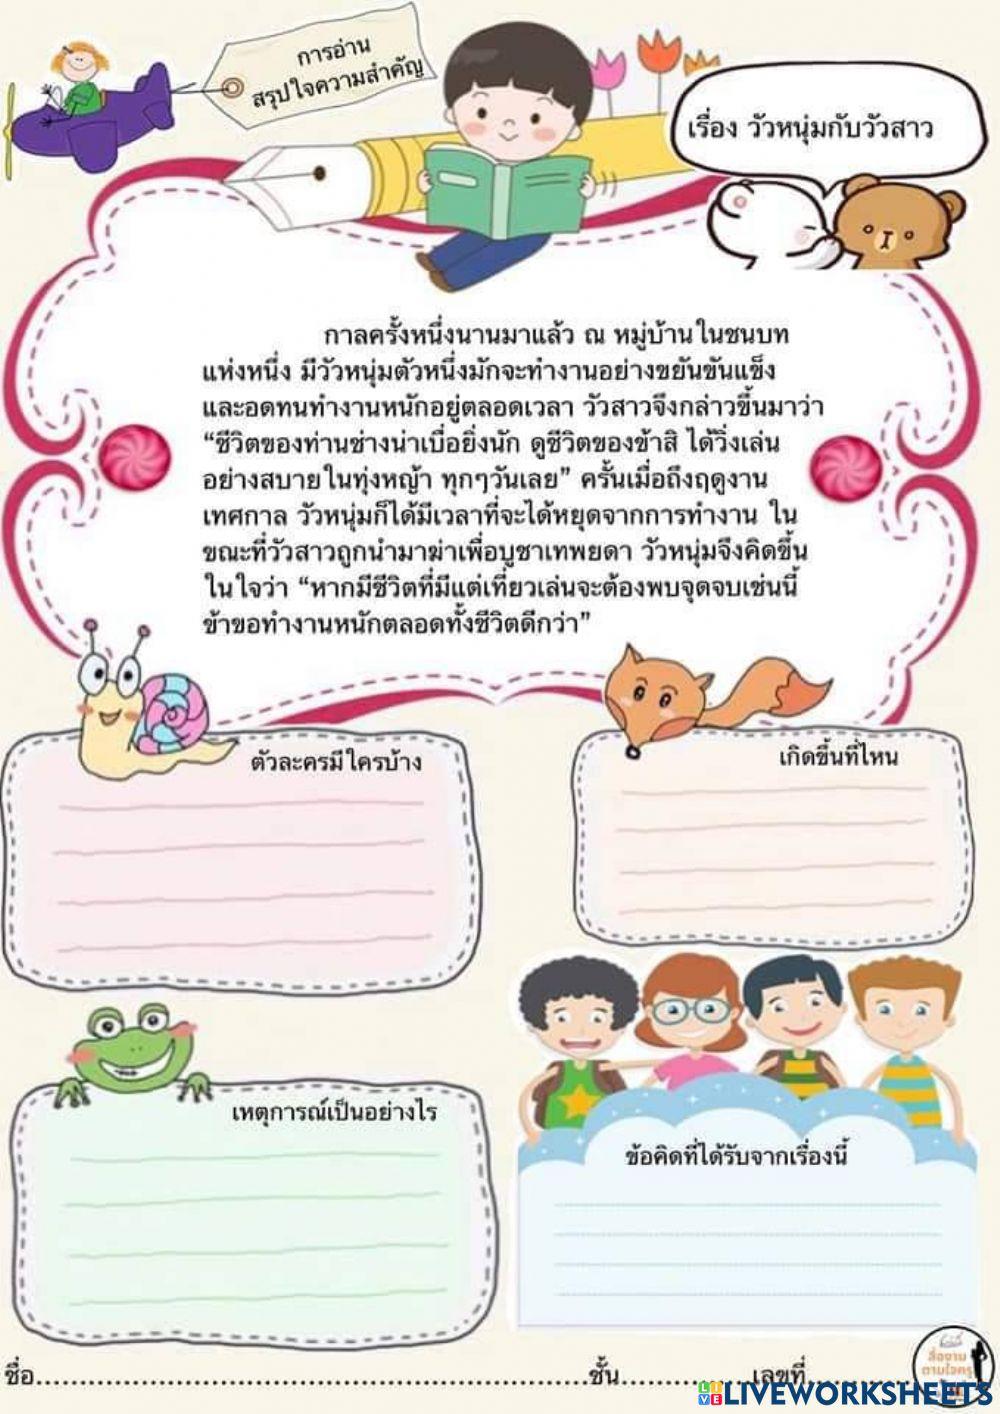 การอ่าน
สรุปใจความสำคัญ
เรื่อง วัวหนุ่มกับวัวสาว
กาลครั้งหนึ่งนานมาแล้ว ณ หมู่บ้านในชนบท
แห่งหนึ่ง มีวัวหนุ่มตัวหนึ่งมักจะทำงานอย่างขยันขันแข็ง
และอดทนทำงานหนักอยู่ตลอดเวลา วัวสาวจึงกล่าวขึ้นมาว่า
“ชีวิตของท่านช่างน่าเบื่อยิ่งนัก ดูชีวิตของข้าสิ ได้วิ่งเล่น
อย่างสบายในทุ่งหญ้า ทุกๆวันเลย” ครั้นเมื่อถึงฤดูงาน
เทศกาล วัวหนุ่มก็ได้มีเวลาที่จะได้หยุดจากการทำงาน ใน
ขณะที่วัวสาวถูกนำมาฆ่าเพื่อบูชาเทพยดา วัวหนุ่มจึงคิดขึ้น
ในใจว่า “หากมีชีวิตที่มีแต่เที่ยวเล่นจะต้องพบจุดจบเช่นนี้
ข้าขอทำงานหนักตลอดทั้งชีวิตดีกว่า”
ตัวละครมีใครบ้าง
เกิดขึ้นที่ไหน
เหตุการณ์เป็นอย่างไร
ข้อคิดที่ได้รับจากเรื่องนี้
สื่องาน
ตามใจครู
ชื่อ................................................ชั้น...............เลขที่..............
LIVE LIVEWORKSHEETS